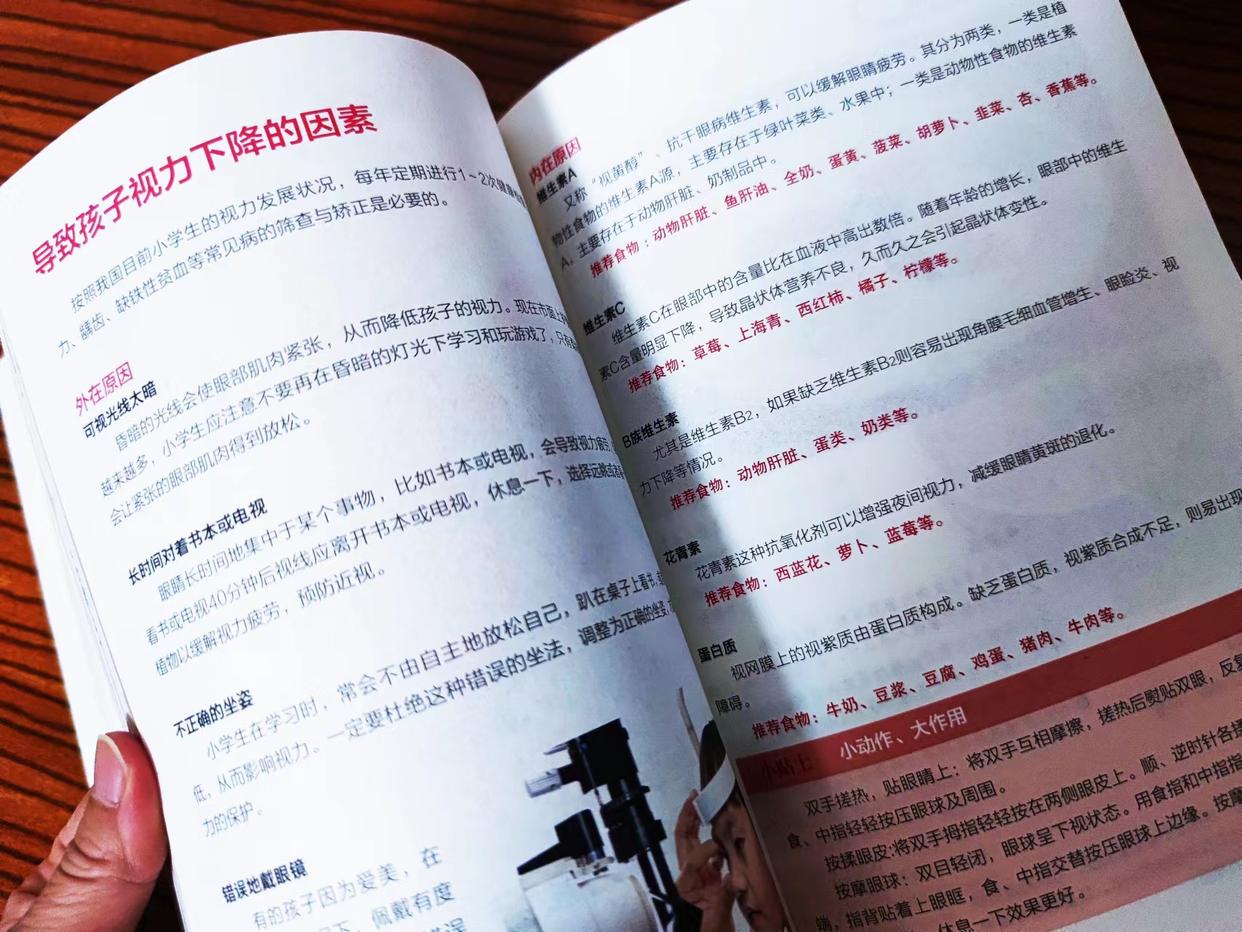 导致孩子视力下降的因素
按照我国目前小学生的视力发展状况，每年定期进行1~2次健康
力、龋齿、缺铁性贫血等常见病的筛查与矫正是必要的。
外在原因
可视光线太暗
昏暗的光线会使眼部肌肉紧张，从而降低孩子的视力。现在市面上
越来越多，小学生应注意不要再在昏暗的灯光下学习和玩游戏了，只有
会让紧张的眼部肌肉得到放松。
长时间对着书本或电视
眼睛长时间地集中于某个事物，比如书本或电视，会导致视力疲劳
看书或电视40分钟后视线应离开书本或电视，休息一下，选择远眺或者看
植物以缓解视力疲劳，预防近视。
不正确的坐姿
小学生在学习时，常会不由自主地放松自己，趴在桌子上看书
低，从而影响视力。一定要杜绝这种错误的坐法，调整为正确的坐姿
力的保护。
错误地戴眼镜
有的孩子因为爱美，在
下，佩戴有度
内在原因
维生素A
又称“视黄醇”、抗干眼病维生素，可以缓解眼睛疲劳。其分为两类，一类是植
物性食物的维生素A源，主要存在于绿叶菜类、水果中；一类是动物性食物的维生素
A，主要存在于动物肝脏、奶制品中。
推荐食物：动物肝脏、鱼肝油、全奶、蛋黄、菠菜、胡萝卜、韭菜、杏、香蕉等。
维生素C
维生素C在眼部中的含量比在血液中高出数倍。随着年龄的增长，眼部中的维生
素C含量明显下降，导致晶状体营养不良，久而久之会引起晶状体变性。
推荐食物：草莓、上海青、西红柿、橘子、柠檬等。
B族维生素
尤其是维生素B2，如果缺乏维生素B2则容易出现角膜毛细血管增生、眼睑炎、视
力下降等情况。
推荐食物：动物肝脏、蛋类、奶类等。
花青素
花青素这种抗氧化剂可以增强夜间视力，减缓眼睛黄斑的退化。
推荐食物：西蓝花、萝卜、蓝莓等。
蛋白质
视网膜上的视紫质由蛋白质构成。缺乏蛋白质，视紫质合成不足，则易出现
障碍。
推荐食物：牛奶、豆浆、豆腐、鸡蛋、猪肉、牛肉等。
小贴士 小动作、大作用
双手搓热，贴眼睛上：将双手互相摩擦，搓热后熨贴双眼，反复
食、中指轻轻按压眼球及周围。
按揉眼皮：将双手拇指轻轻按在两侧眼皮上。顺、逆时针各揉
按摩眼球：双目轻闭，眼球呈下视状态。用食指和中指指
端，指背贴着上眼眶，食、中指交替按压眼球上边缘。按摩
休息一下效果更好。